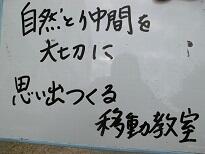 自然と仲間を
大切に
思い出つくる
移動教室